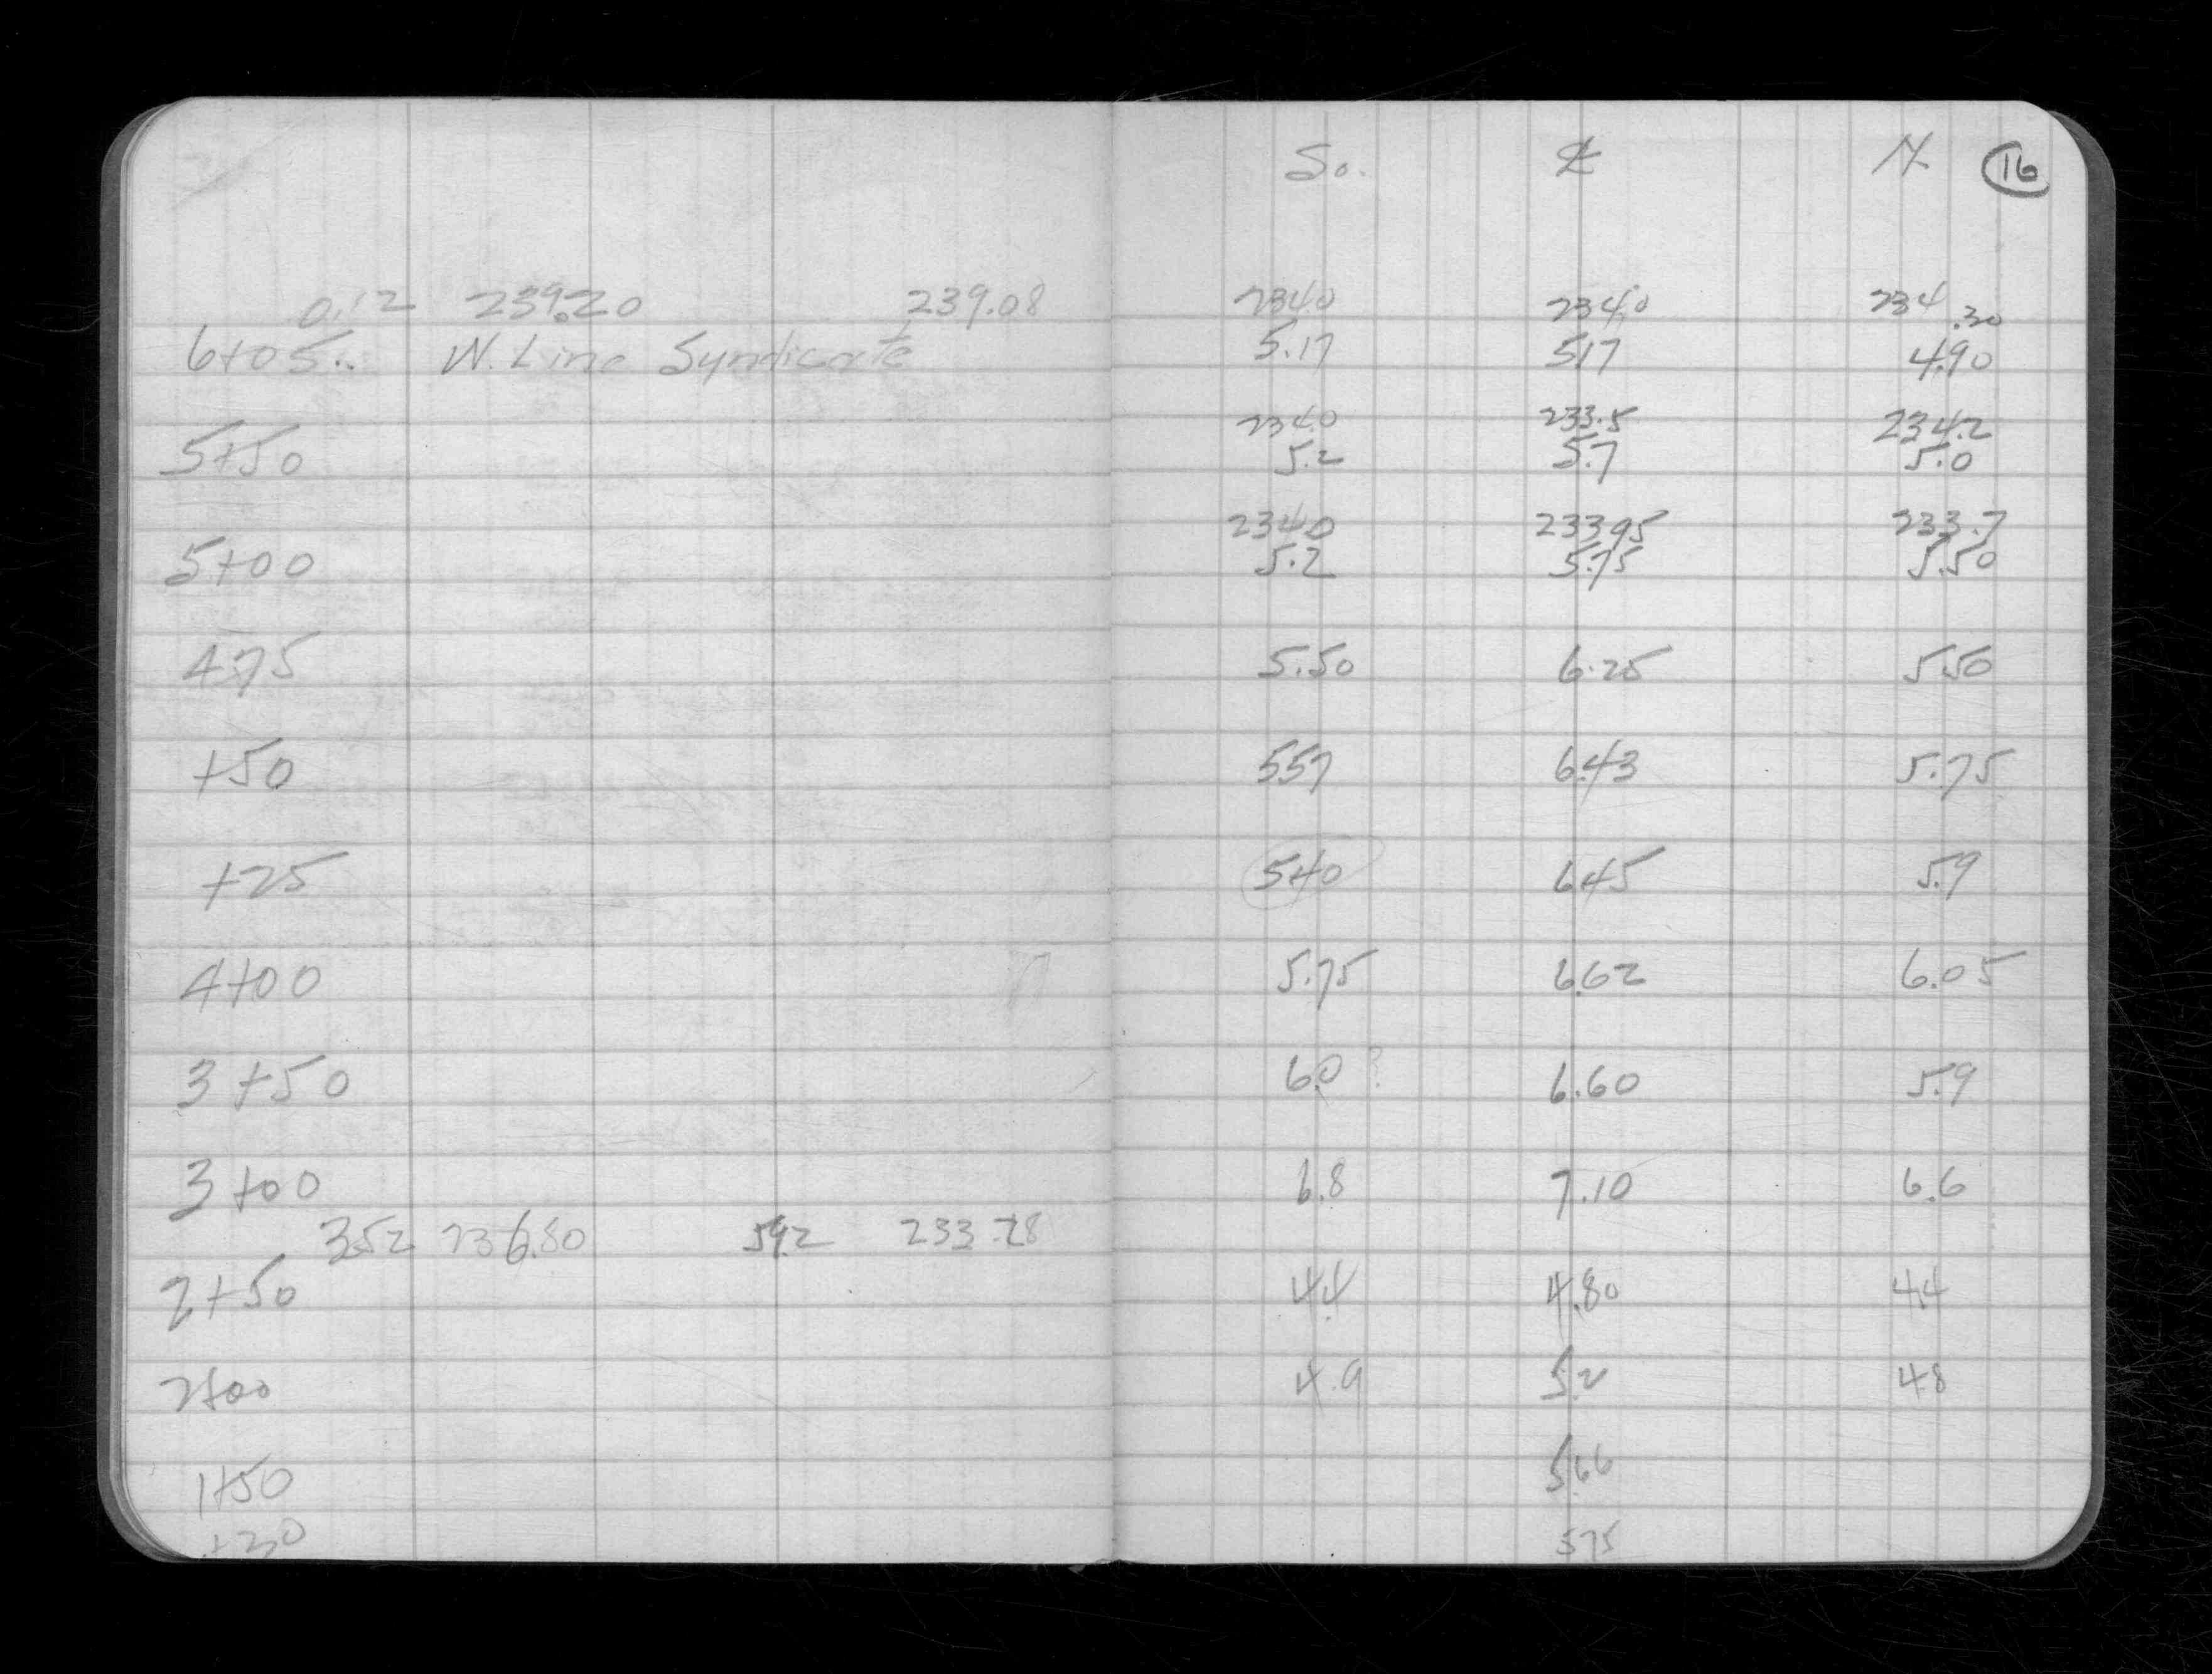 So. ℄ N 16
0.12 239.20 239.08 234.0 234.0 234.30
6+05.. W. Line Syndicate 5.17 5.17 4.90
234.0 233.5 234.2
5+50 5.2 5.7 5.0
234.0 233 95 233.7
5+00 5.2 5.75 5.50
4+75 5.50 6.25 5.50
+50 5.57 6.43 5.75
+25 5.40 6.45 5.9
4+00 5.75 6.62 6.05
3+50 6.0 ? 6.60 5.9
3+00 6.8 7.10 6.6
3.52 236.80 5.92 233.28
2+50 4.4 4.80 4.4
2+00 4.9 5.2 4.8
1+50 5.66
+30 5.75